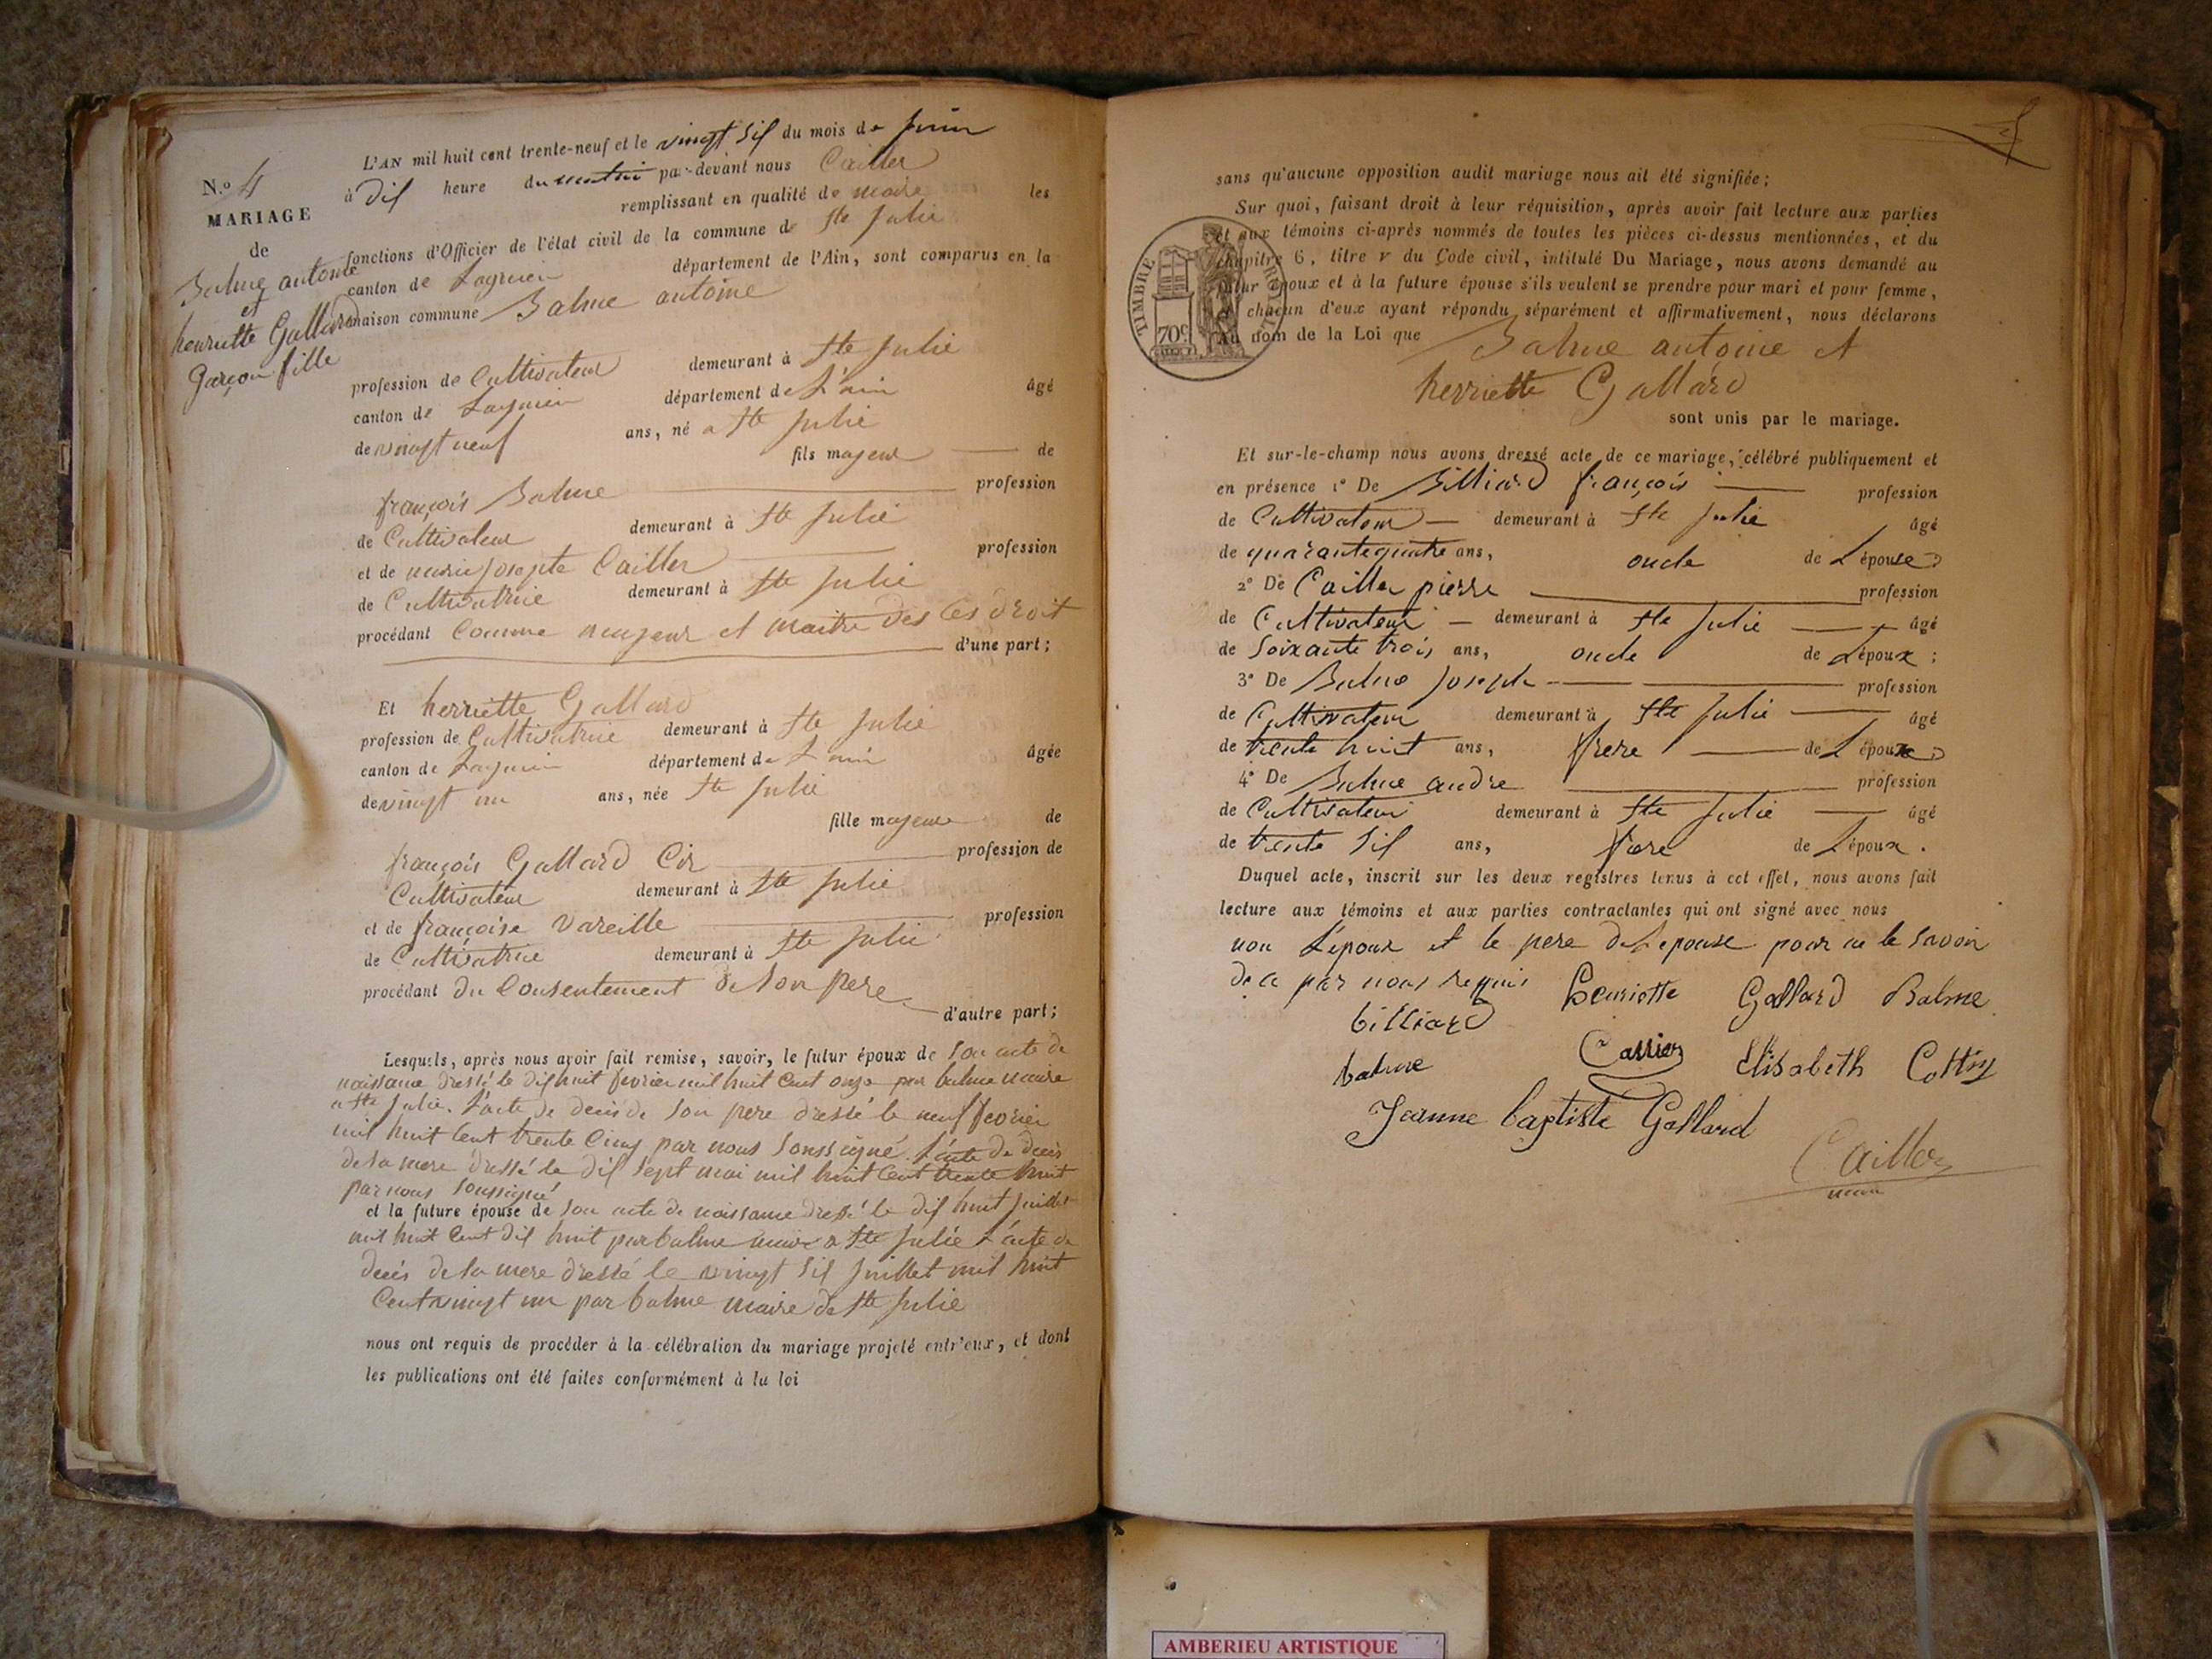 N.o 4
MARIAGE
de
Balme antoine
et
henriette Gallard
garçon fille
L'AN mil huit cent trente-neuf et le vingt sif du mois de juin
à dif heure du matin par-devant nous Cailler
remplissant en qualité de maire les
fonctions d'Officier de l'état civil de la commune de Ste Julie
canton de Lagnieu département de l'Ain, sont comparus en la
maison commune Balme antoine
profession de Cultivateur demeurant à Ste Julie
canton de Lagnieu département de L'ain âgé
de vingt neuf ans, né a Ste Julie
fils majeur de
françois Balme profession
de Cultivateur demeurant à Ste Julie
et de marie josepte Cailler profession
de Cultivatrice demeurant à Ste Julie
procédant Comme majeur et maitre des ces droit
d'une part;
Et herriette Gallard
profession de Cultivatrice demeurant à Ste Julie
canton de Lagnieu département de L'ain âgée
de vingt un ans, née Ste Julie
fille majeure de
françois Gallard Cir profession de
Cultivateur demeurant à Ste Julie
et de françoise Vareille profession
de Cultivatrice demeurant à Ste Julie
procédant du Consentement de son pere
d'autre part;
Lesquels, après nous avoir fait remise, savoir, le futur époux de son acte de
naissance dressé le dif huit fevrier mil huit Cent onze par balme maire
a Ste Julie. L'acte de decis de son pere dressé le neuf fevrier
mil huit Cent trente Cinq par nous Soussigné L'acte de decis
de sa mere dressé le dif sept mai mil huit Cent trente huit
par nous Soussigné
et la future épouse de son acte de naissance dressé le dif huit juillet
mil huit Cent dif huit par balme maire a Ste Julie L'acte de
decés de sa mere dressé le vingt sif juillet mil huit
Cent vingt un par balme maire de Ste Julie
nous ont requis de procéder à la célébration du mariage projeté entr'eux, et dont
les publications ont été faites conformément à la loi
sans qu'aucune opposition audit mariage nous ait été signifiée;
Sur quoi, faisant droit à leur réquisition, après avoir fait lecture aux parties
et aux témoins ci-après nommés de toutes les pièces ci-dessus mentionnées, et du
chapitre 6, titre v du Code civil, intitulé Du Mariage, nous avons demandé au
futur époux et à la future épouse s'ils veulent se prendre pour mari et pour femme,
chacun d'eux ayant répondu séparément et affirmativement, nous déclarons
au nom de la Loi que Balme antoine et
herriette Gallard
sont unis par le mariage.
TIMBRE ROYAL
70c.
Et sur-le-champ nous avons dressé acte de ce mariage, célébré publiquement et
en présence 1° De Billiard françois profession
de Cultivateur demeurant à Ste Julie âgé
de quarante quatre ans, oncle de L'épouse
2° De Cailler pierre profession
de Cultivateur demeurant à Ste Julie âgé
de Soixante trois ans, oncle de L'époux;
3° De Balme Joseph profession
de Cultivateur demeurant à Ste Julie âgé
de trente huit ans, frere de L'époux
4° De Balme andre profession
de Cultivateur demeurant à Ste Julie âgé
de trente sif ans, frere de L'époux.
Duquel acte, inscrit sur les deux registres tenus à cet effet, nous avons fait
lecture aux témoins et aux parties contractantes qui ont signé avec nous
non L'époux et le pere de L'epouse pour ne le savoir
de ce par nous requis Henriette Gallard Balme
billiard
balme Carrier Elisabeth Cottin
Jeanne baptiste Gallard
Cailler
maire
AMBERIEU ARTISTIQUE